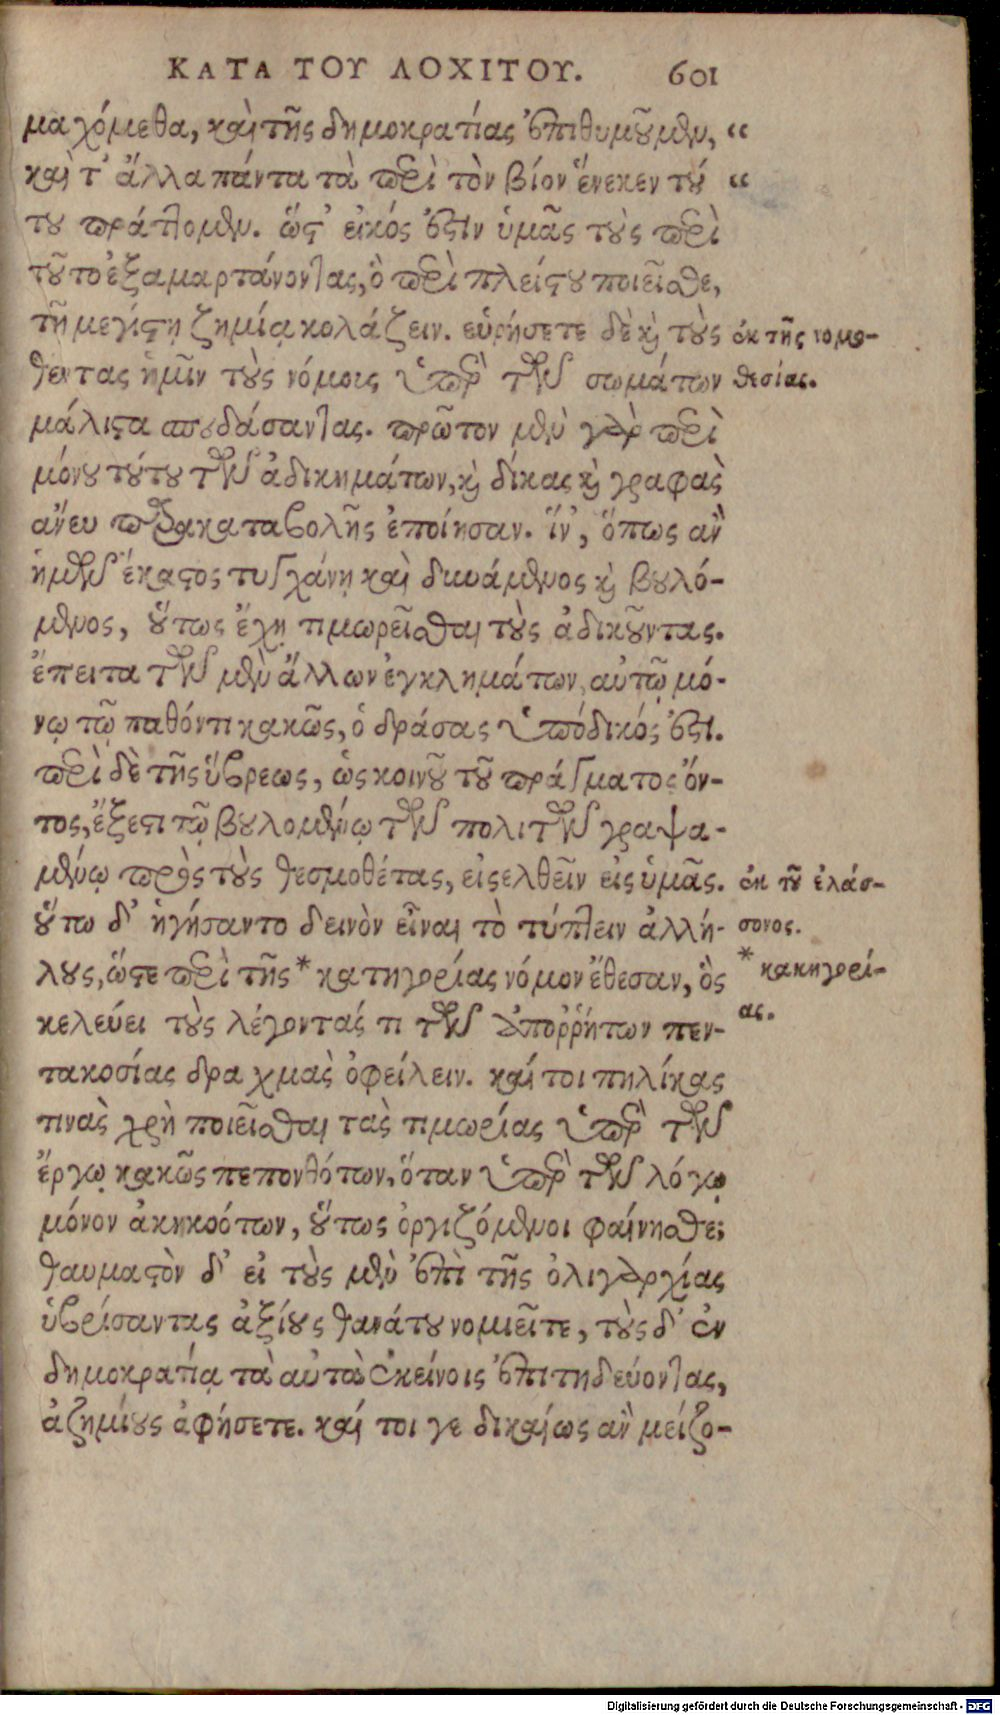 ΚΑΤΑ ΤΟΥ ΛΟΧΙΤΟΥ. 601
μαχόμεθα, καὶ τῆς δημοκρατίας ἐπιθυμοῦμεν, “
καὶ τ' ἄλλα πάντα τὰ περὶ τὸν βίον ἕνεκεν τού “
του πράττομεν. ὥστ' εἰκός ἐστιν ὑμᾶς τοὺς περὶ
τοῦτο ἐξαμαρτάνοντας, ὃ περὶ πλείστου ποιεῖσθε,
τῇ μεγίστῃ ζημίᾳ κολάζειν. εὑρήσετε δὲ καὶ τοὺς
θέντας ἡμῖν τοὺς νόμοις ὑπὲρ τῶν σωμάτων
μάλιστα σπουδάσαντας. πρῶτον μὲν γὰρ περὶ
μόνου τούτου τῶν ἀδικημάτων, καὶ δίκας καὶ γραφὰς
ἄνευ παρακαταβολῆς ἐποίησαν. ἵν', ὅπως ἂν
ἡμῶν ἕκαστος τυγχάνῃ καὶ δυνάμενος καὶ βουλό-
μενος, οὕτως ἔχῃ τιμωρεῖσθαι τοὺς ἀδικοῦντας.
ἔπειτα τῶν μὲν ἄλλων ἐγκλημάτων, αὐτῷ μό-
νῳ τῷ παθόντι κακῶς, ὁ δράσας ὑπόδικός ἐστι.
περὶ δὲ τῆς ὕβρεως, ὡς κοινοῦ τοῦ πράγματος ὄν-
τος, ἔξεστι τῷ βουλομένῳ τῶν πολιτῶν γραψα-
μένῳ πρὸς τοὺς θεσμοθέτας, εἰσελθεῖν εἰς ὑμᾶς.
οὕτω δ' ἡγήσαντο δεινὸν εἶναι τὸ τύπτειν ἀλλή-
λους, ὥστε περὶ τῆς * κατηγορίας νόμον ἔθεσαν, ὃς
κελεύει τοὺς λέγοντάς τι τῶν ἀποῤῥήτων πεν-
τακοσίας δραχμὰς ὀφείλειν. καί τοι πηλίκας
τινὰς χρὴ ποιεῖσθαι τὰς τιμωρίας ὑπὲρ τῶν
ἔργῳ κακῶς πεπονθότων, ὅταν ὑπὲρ τῶν λόγῳ
μόνον ἀκηκοότων, οὕτως ὀργιζόμενοι φαίνησθε;
θαυμαστὸν δ' εἰ τοὺς μὲν ἐπὶ τῆς ὀλιγαρχίας
ὑβρίσαντας ἀξίους θανάτου νομιεῖτε, τοὺς δ' ἐν
δημοκρατίᾳ τὰ αὐτὰ ἐκείνοις ἐπιτηδεύοντας,
ἀζημίους ἀφήσετε. καί τοι γε δικαίως ἂν μείζο-
ἐκ τῆς νομο-
θεσίας.
ἐκ τοῦ ἐλάσ-
σονος.
* κακηγορί-
ας.
Digitalisierung gefördert durch die Deutsche Forschungsgemeinschaft - DFG